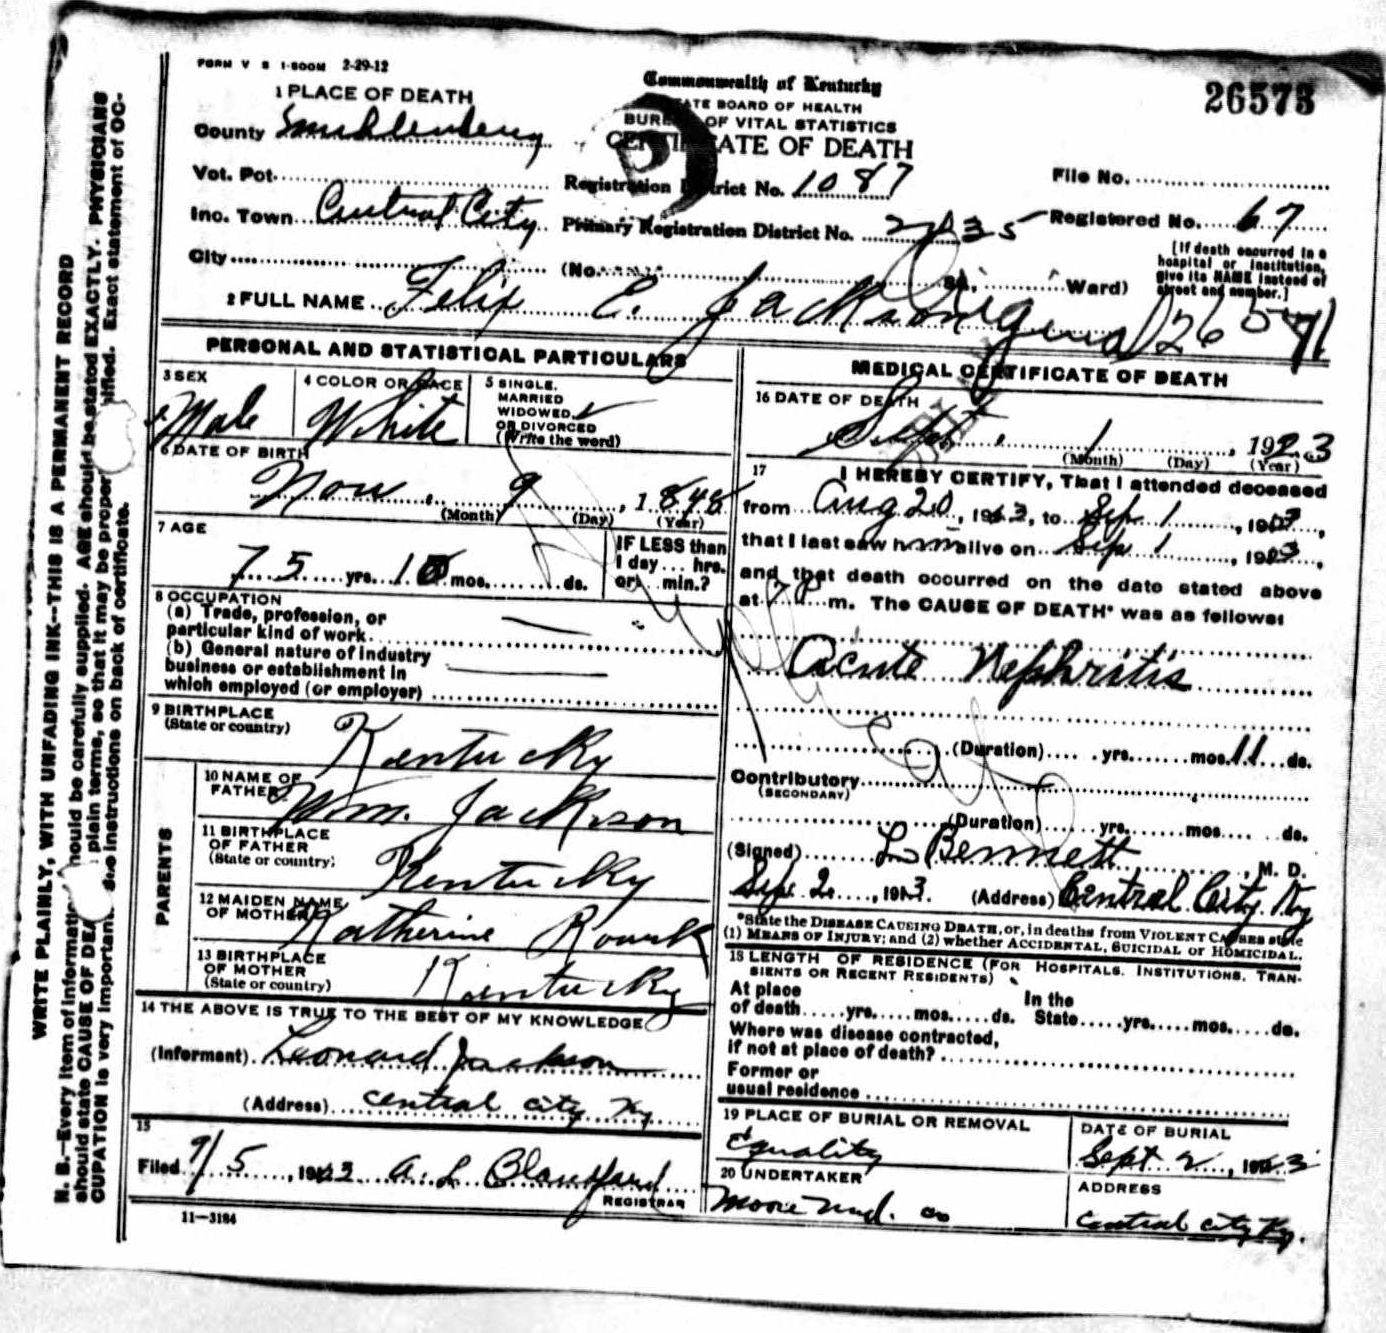 FORM V S 1-500M 2-29-12
Commonwealth of Kentucky
STATE BOARD OF HEALTH
BUREAU OF VITAL STATISTICS
CERTIFICATE OF DEATH
26573
1 PLACE OF DEATH
County Muhlenberg
Vot. Pct.
Registration District No. 1087
File No.
Inc. Town Central City
Primary Registration District No. 2435
Registered No. 67
City
(No. St., Ward)
[If death occurred in a hospital or institution, give its NAME instead of street and number.]
2 FULL NAME Felix E. Jackson
Original 26571
Duplicate
PERSONAL AND STATISTICAL PARTICULARS
3 SEX
Male
4 COLOR OR RACE
White
5 SINGLE, MARRIED WIDOWED, OR DIVORCED (Write the word)
6 DATE OF BIRTH
Nov. 9, 1848
(Month) (Day) (Year)
7 AGE
75 yrs. 10 mos. ds.
IF LESS than 1 day ... hrs. or ... min.?
8 OCCUPATION
(a) Trade, profession, or
particular kind of work
(b) General nature of industry
business or establishment in
which employed (or employer)
9 BIRTHPLACE
(State or country)
Kentucky
PARENTS
10 NAME OF FATHER
Wm. Jackson
11 BIRTHPLACE OF FATHER
(State or country)
Kentucky
12 MAIDEN NAME OF MOTHER
Katherine Roark
13 BIRTHPLACE OF MOTHER
(State or country)
Kentucky
14 THE ABOVE IS TRUE TO THE BEST OF MY KNOWLEDGE
(Informant) Leonard Jackson
(Address) Central City Ky
15
Filed 9/5, 1923 A. L. Blandford
REGISTRAR
11—3184
MEDICAL CERTIFICATE OF DEATH
16 DATE OF DEATH
Sept. 1, 1923
(Month) (Day) (Year)
17 I HEREBY CERTIFY, That I attended deceased
from Aug 20, 1923, to Sep 1, 1923,
that I last saw him alive on Sep 1, 1923,
and that death occurred on the date stated above
at 7 P m. The CAUSE OF DEATH* was as follows:
Acute Nephritis
(Duration) yrs. mos. 11 ds.
Contributory
(SECONDARY)
(Duration) yrs. mos. ds.
(Signed) L Bennett, M. D.
Sep 2, 1923. (Address) Central City Ky
*State the DISEASE CAUSING DEATH, or, in deaths from VIOLENT CAUSES state
(1) MEANS OF INJURY; and (2) whether ACCIDENTAL, SUICIDAL or HOMICIDAL.
18 LENGTH OF RESIDENCE (FOR HOSPITALS, INSTITUTIONS, TRAN-
SIENTS OR RECENT RESIDENTS)
At place of death yrs. mos. ds. In the State yrs. mos. ds.
Where was disease contracted,
if not at place of death?
Former or
usual residence
19 PLACE OF BURIAL OR REMOVAL
Equality
DATE OF BURIAL
Sept 2, 1923
20 UNDERTAKER
Moore Und. Co
ADDRESS
Central City Ky.
WRITE PLAINLY, WITH UNFADING INK—THIS IS A PERMANENT RECORD
N. B.—Every item of information should be carefully supplied. AGE should be stated EXACTLY. PHYSICIANS
should state CAUSE OF DEATH in plain terms, so that it may be properly classified. Exact statement of OC-
CUPATION is very important. See instructions on back of certificate.